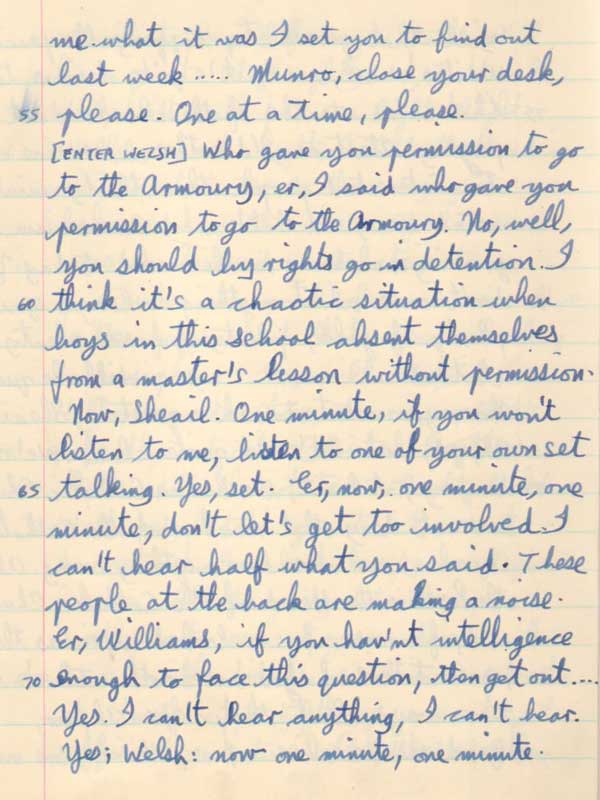 me what it was I set you to find out
last week ..... Munro, close your desk,
55 please. One at a time, please.
[ENTER WELSH] Who gave you permission to go
to the Armoury, er, I said who gave you
permission to go to the Armoury. No, well,
you should by rights go in detention. I
60 think it's a chaotic situation when
boys in this school absent themselves
from a master's lesson without permission.
Now, Sheail. One minute, if you won't
listen to me, listen to one of your own set
65 talking. Yes, set. Er, now, one minute, one
minute, don't let's get too involved. I
can't hear half what you said. These
people at the back are making a noise.
Er, Williams, if you hav'nt intelligence
70 enough to face this question, then get out....
Yes. I can't hear anything, I can't hear.
Yes; Welsh: now one minute, one minute.